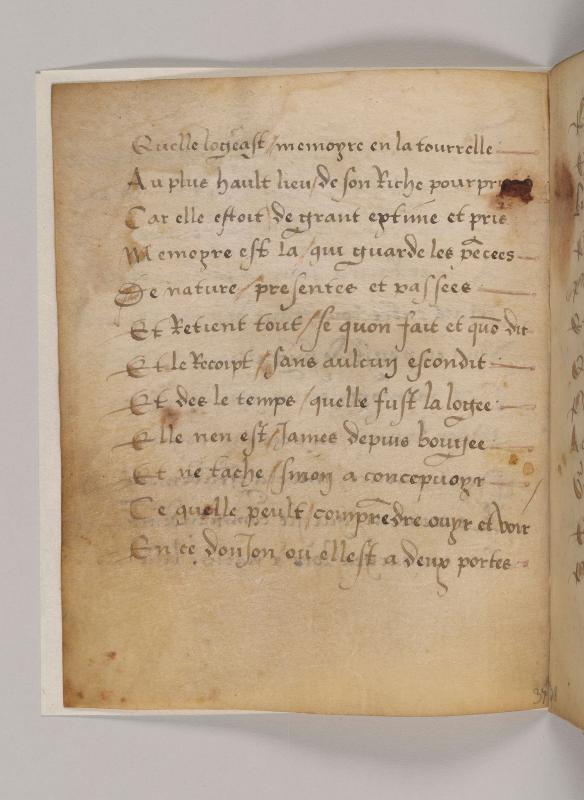 Quelle logeast / memoyre en la tourrelle
Au plus hault lieu / de son Riche pourpris
Car elle estoit de grant extime et pris
Memoyre est la / qui guarde les pēcees
De nature / presentes et passees
Et Retient tout / se quon fait et quō dit
Et le Recoipt / sans aulcun escondit
Et des le temps / quelle fust la logee
Elle nen est / James depuis bougee
Et ne tache / sinon a concepvoyr
Ce quelle peult / comprēdre ouyr et voir
En ce donJon ou ellest a deux portes